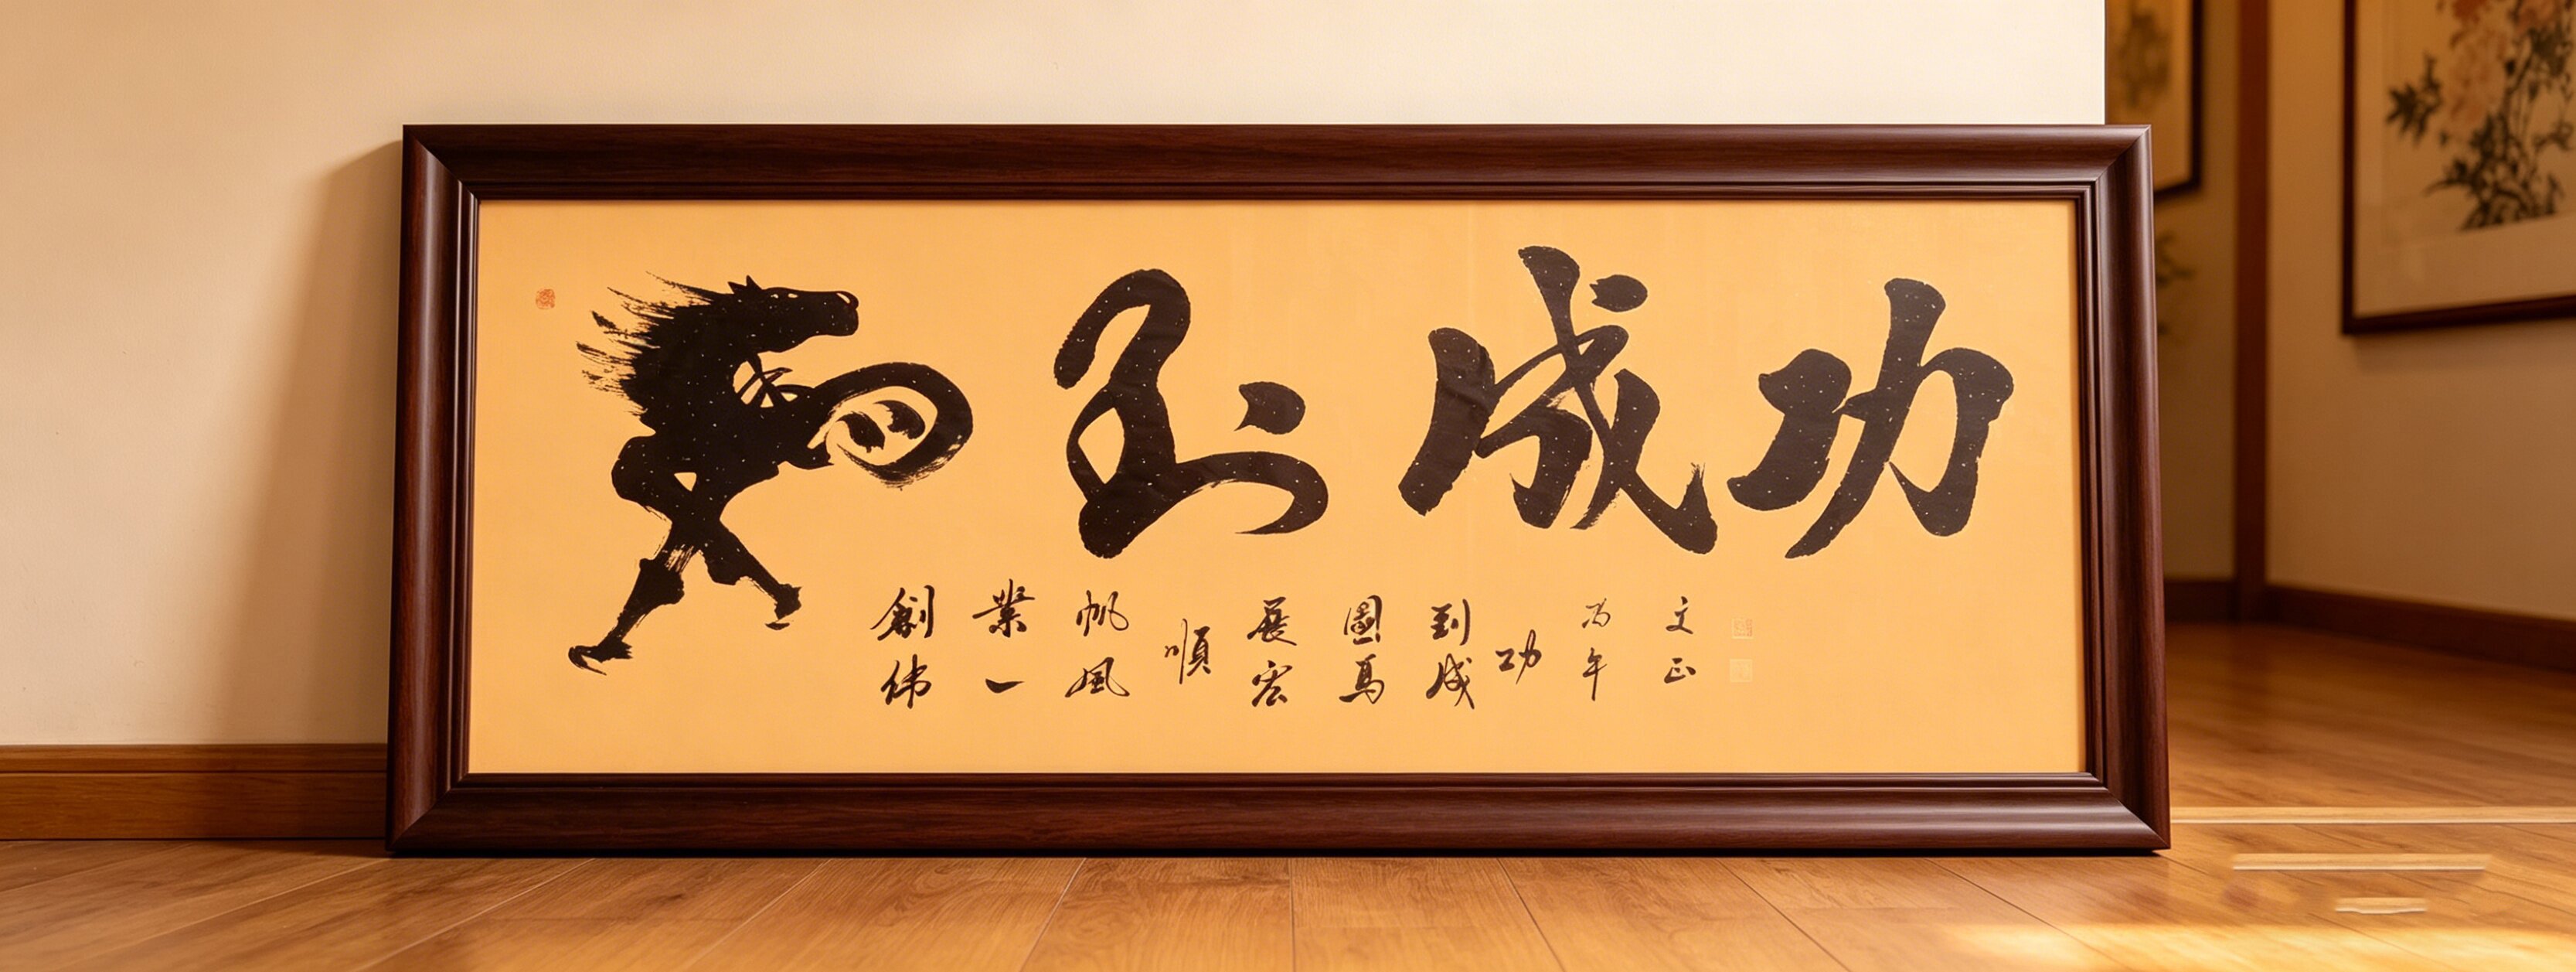 馬到成功
創偉
業一
帆風
順
展宏
圖馬
到成
功
午
文正